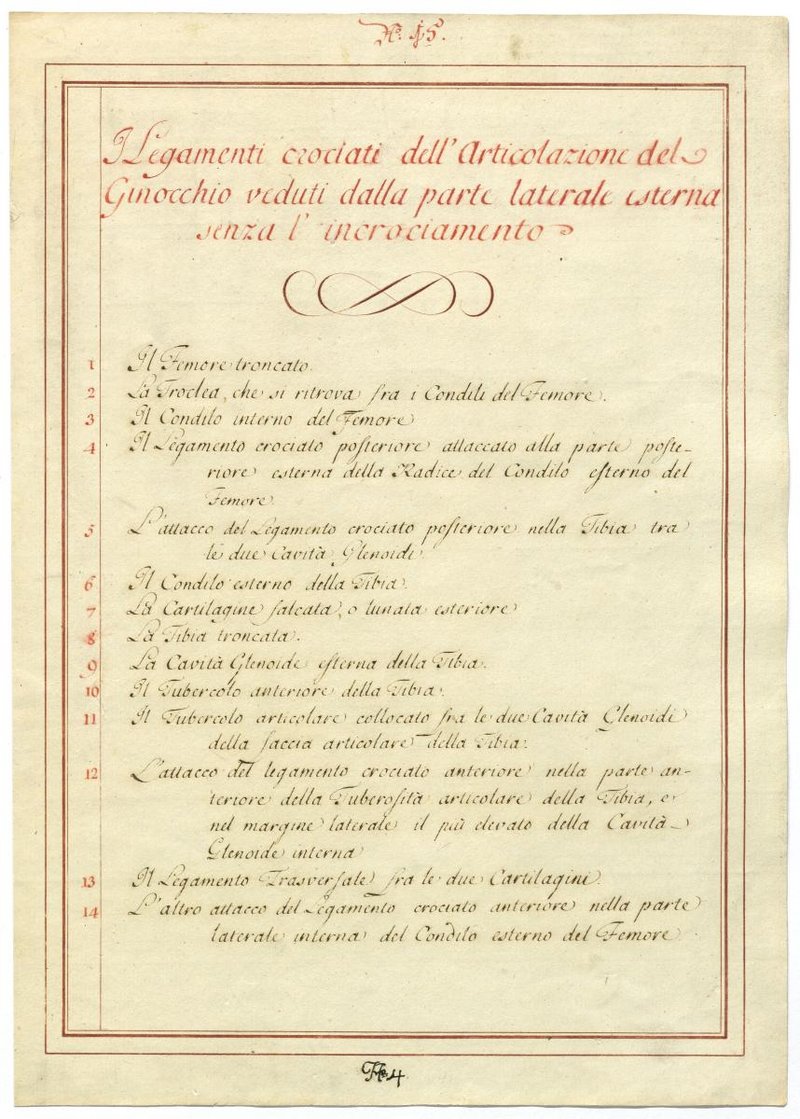 N.º 45.
I Legamenti crociati dell'Articolazione del
Ginocchio veduti dalla parte laterale esterna
senza l'incrociamento
1 Il Femore troncato.
2 La Troclea, che si ritrova fra i Condili del Femore.
3 Il Condilo interno del Femore
4 Il Legamento crociato posteriore attaccato alla parte poste-
riore esterna della Radice del Condilo esterno del
Femore.
5 L'attacco del Legamento crociato posteriore nella Tibia tra
le due Cavità Glenoidi.
6 Il Condilo esterno della Tibia.
7 La Cartilagine falcata, o lunata esteriore
8 La Tibia troncata.
9 La Cavità Glenoide esterna della Tibia.
10 Il Tubercolo anteriore della Tibia.
11 Il Tubercolo articolare collocato fra le due Cavità Glenoidi
della faccia articolare della Tibia.
12 L'attacco del legamento crociato anteriore nella parte an-
teriore della Tuberosità articolare della Tibia, e
nel margine laterale il più elevato della Cavità
Glenoide interna
13 Il Legamento Trasversale fra le due Cartilagini.
14 L'altro attacco del Legamento crociato anteriore nella parte
laterale interna del Condilo esterno del Femore
4